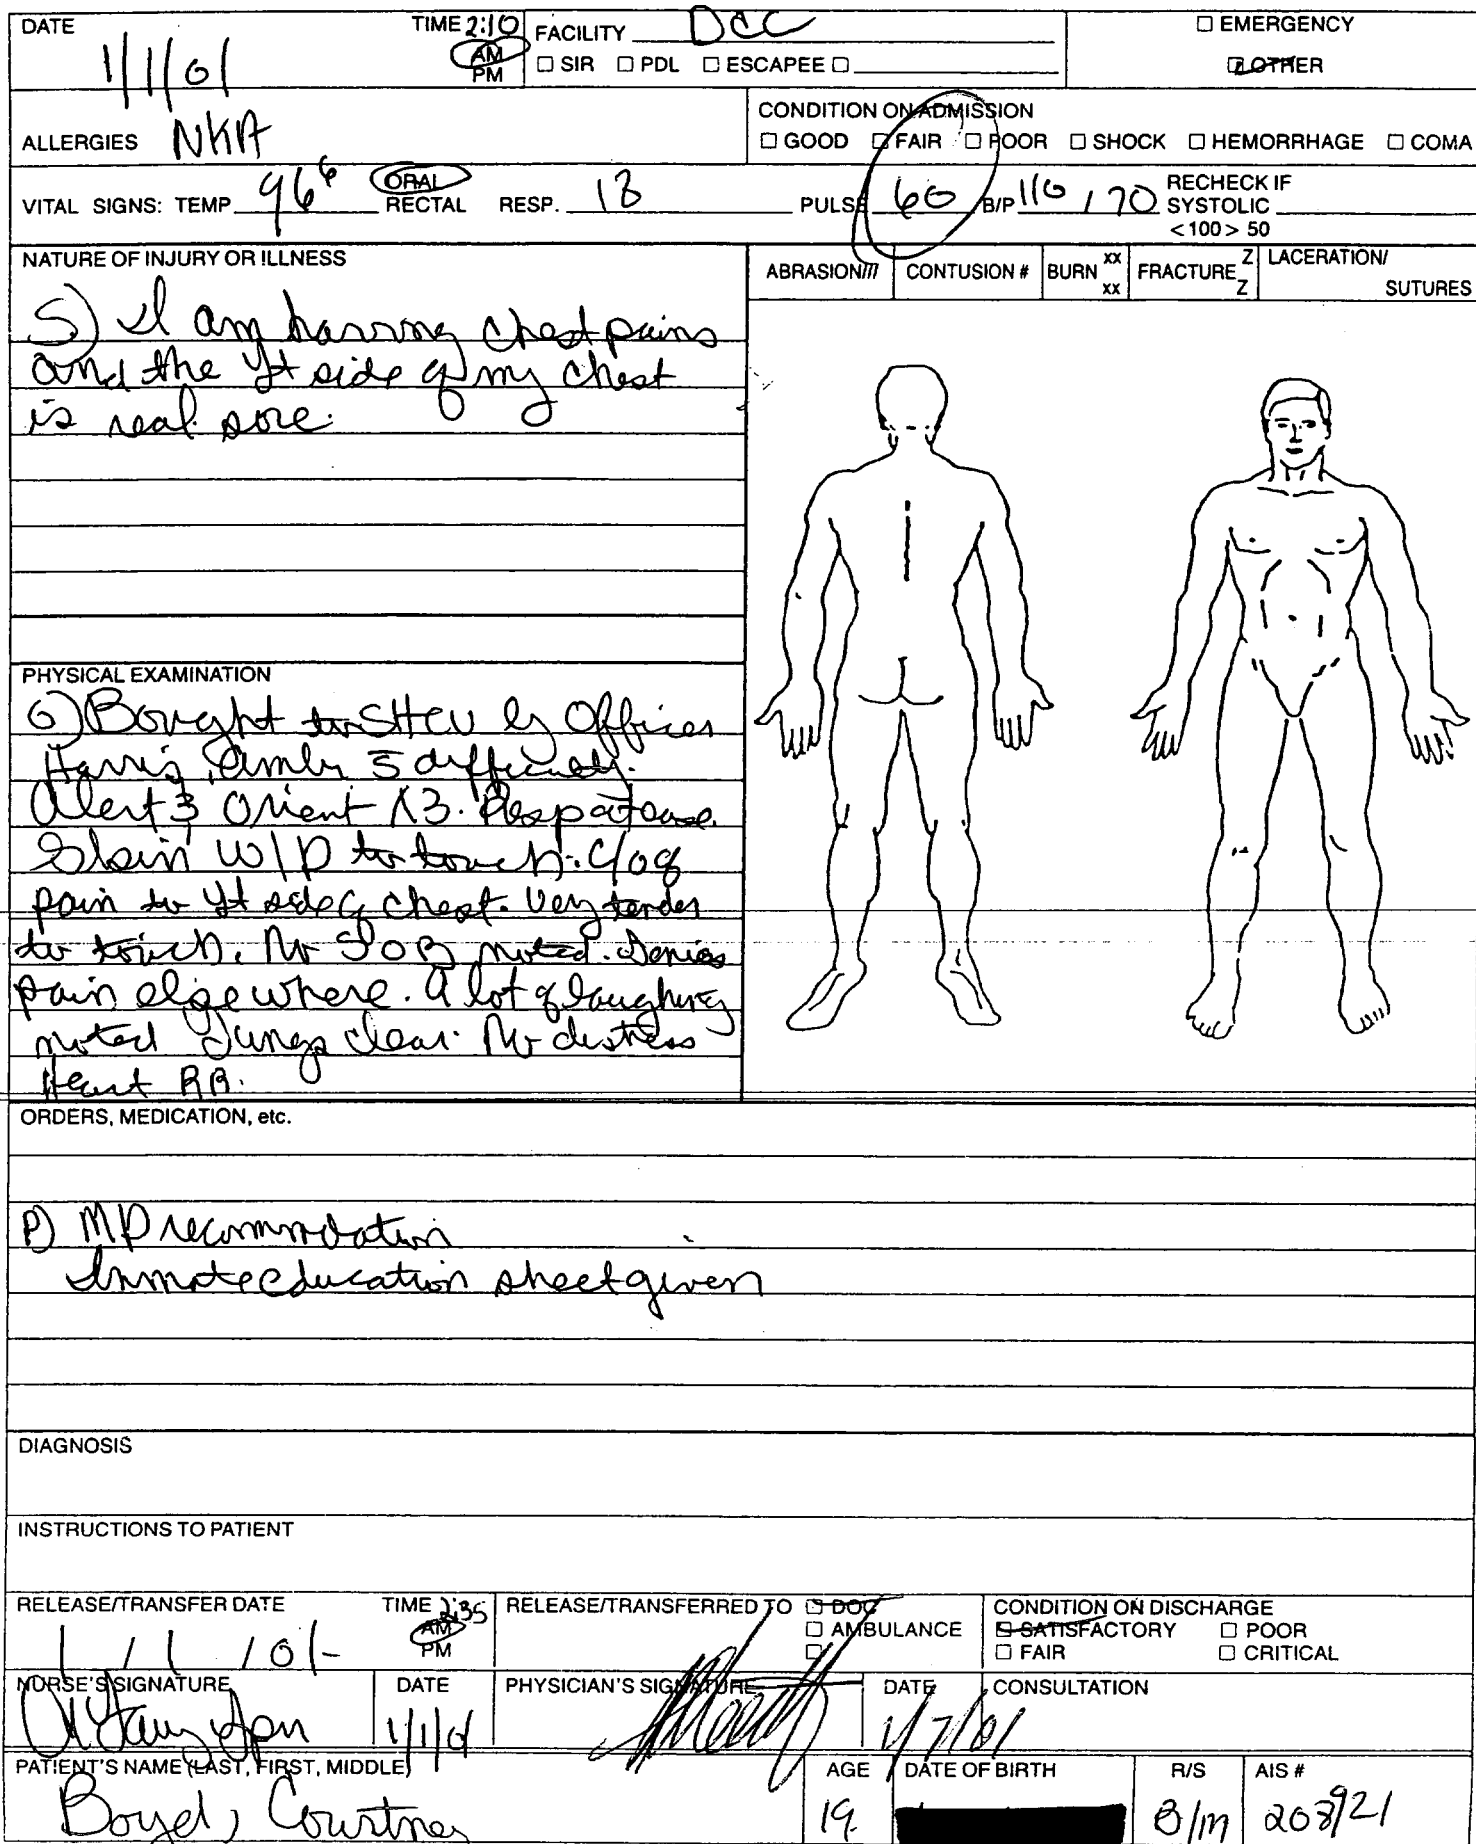 DATE 1/1/01 TIME 2:10 AM PM FACILITY DCC ☐ EMERGENCY
☐ SIR ☐ PDL ☐ ESCAPEE ☐ ☐ OTHER
ALLERGIES NKA CONDITION ON ADMISSION
☐ GOOD ☐ FAIR ☐ POOR ☐ SHOCK ☐ HEMORRHAGE ☐ COMA
VITAL SIGNS: TEMP. 96⁶ ORAL RECTAL RESP. 18 PULSE 60 B/P 110 / 70 RECHECK IF SYSTOLIC <100 > 50
NATURE OF INJURY OR ILLNESS
ABRASION/// CONTUSION # BURN xx xx FRACTURE Z Z LACERATION/ SUTURES
S) I am having chest pains
and the side of my chest
is real sore.
PHYSICAL EXAMINATION
O) Bought to SHCU by Officer
Harris, amb s̄ difficulty.
Alert & Orient X3. Resp at ease.
Skin W/D to touch. C/o of
pain to side of chest. Very tender
to touch. No SOB noted. Denies
pain elsewhere. A lot of laughing
noted Lungs clear. No distress
Heart RR.
ORDERS, MEDICATION, etc.
P) MD recommodation
Inmate education sheet given
DIAGNOSIS
INSTRUCTIONS TO PATIENT
RELEASE/TRANSFER DATE TIME 2:35 AM PM RELEASE/TRANSFERRED TO ☐ DOC CONDITION ON DISCHARGE
1 / 1 / 01 ☐ AMBULANCE ☐ SATISFACTORY ☐ POOR
☐ ☐ FAIR ☐ CRITICAL
NURSE'S SIGNATURE DATE PHYSICIAN'S SIGNATURE DATE CONSULTATION
1/1/01 1/7/01
PATIENT'S NAME (LAST, FIRST, MIDDLE) AGE DATE OF BIRTH R/S AIS #
Boyd, Courtney 19 B/M 208921